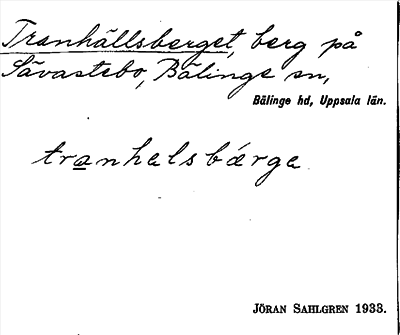 Tranhällsberget, berg på
Sävastebo, Bälinge sn,
Bälinge hd, Uppsala län.
tranhalsbǽrge
JÖRAN SAHLGREN 1933.